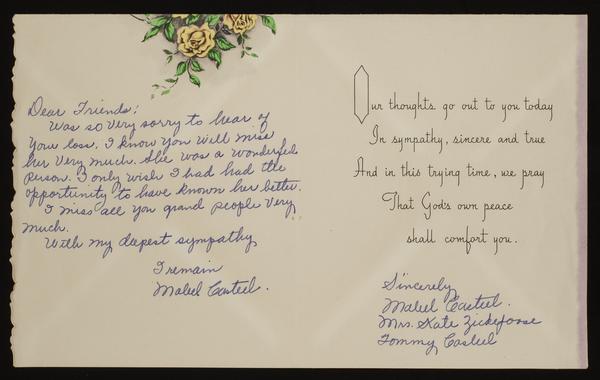 Dear Friends:
Was so very sorry to hear of
your loss. I know you will miss
her very much. She was a wonderful
person. I only wish I had had the
opportunity to have known her better.
I miss all you grand people very
much.
With my deepest sympathy
I remain
Mabel Casteel.
Our thoughts go out to you today
In sympathy, sincere and true
And in this trying time, we pray
That God's own peace
shall comfort you.
Sincerely
Mabel Casteel.
Mrs. Kate Zickefoose
Tommy Casteel